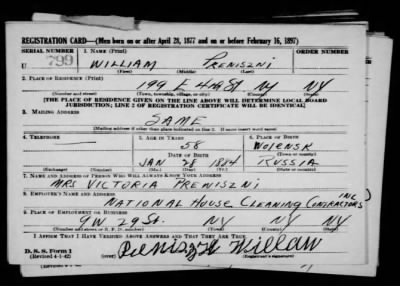 REGISTRATION CARD—(Men born on or after April 28, 1877 and on or before February 16, 1897)
SERIAL NUMBER
1. NAME (Print)
ORDER NUMBER
U 799
WILLIAM PRENISZNI
(First) (Middle) (Last)
2. PLACE OF RESIDENCE (Print)
199 E 4th St NY NY
(Number and street) (Town, township, village, or city) (County) (State)
[THE PLACE OF RESIDENCE GIVEN ON THE LINE ABOVE WILL DETERMINE LOCAL BOARD
JURISDICTION; LINE 2 OF REGISTRATION CERTIFICATE WILL BE IDENTICAL]
3. MAILING ADDRESS
SAME
[Mailing address if other than place indicated on line 2. If same insert word same]
4. TELEPHONE
5. AGE IN YEARS
6. PLACE OF BIRTH
58
WOLENSK
DATE OF BIRTH
(Town or county)
JAN 28 1884
RUSSIA
(Exchange) (Number)
(Mo.) (Day) (Yr.)
(State or country)
7. NAME AND ADDRESS OF PERSON WHO WILL ALWAYS KNOW YOUR ADDRESS
MRS VICTORIA PRENISZNI
8. EMPLOYER'S NAME AND ADDRESS
NATIONAL HOUSE CLEANING CONTRACTORS INC
9. PLACE OF EMPLOYMENT OR BUSINESS
9 W 29 St. NY NY NY
(Number and street or R. F. D. number) (Town) (County) (State)
I AFFIRM THAT I HAVE VERIFIED ABOVE ANSWERS AND THAT THEY ARE TRUE.
D. S. S. Form 1
(Revised 4-1-42)
(over)
(Registrant's signature)